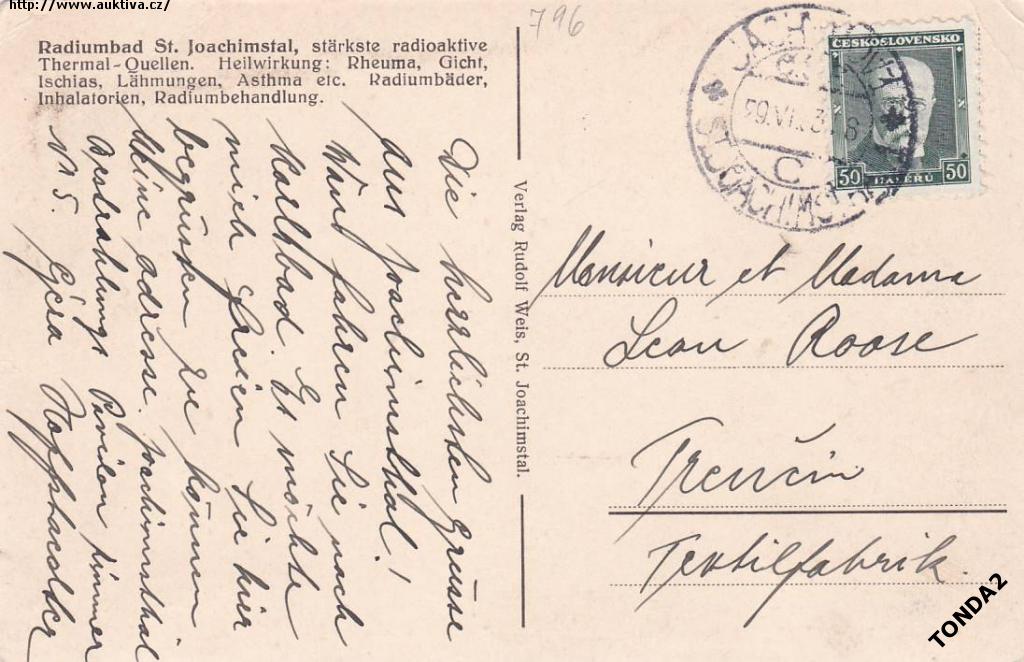 http://www.auktiva.cz/
796
Radiumbad St. Joachimstal, stärkste radioaktive
Thermal-Quellen. Heilwirkung: Rheuma, Gicht,
Ischias, Lähmungen, Asthma etc. Radiumbäder,
Inhalatorien, Radiumbehandlung.
Die herzlichsten Grüsse
aus Joachimsthal!
Wann fahren Sie nach
Karlbad. Es möchte
mich freien Sie hier
begrüssen zu können
Meine adresse. Joachimsthal
Bestrahlungs Pavilon Zimmer
N 5. Géza
Verlag Rudolf Weis, St. Joachimstal.
JÁCHYMOV
ST. JOACHIMSTAL
C
ČESKOSLOVENSKO
50 HALÉŘŮ 50
Monsieur et Madame
Leon Roose
Trenčín
Textilfabrik.
TONDA2